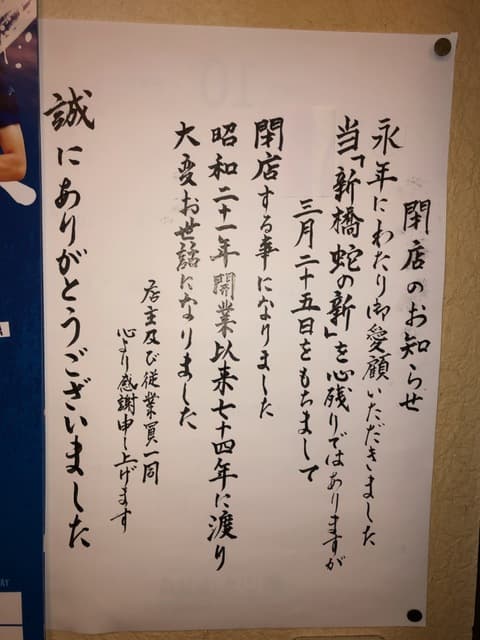 閉店のお知らせ
永年にわたり御愛顧いただきました
当「新橋 蛇の新」を心残りではありますが
三月二十五日をもちまして
閉店する事になりました
昭和二十一年開業以来七十四年に渡り
大変お世話になりました
店主及び従業員一同
心より感謝申し上げます
誠にありがとうございました